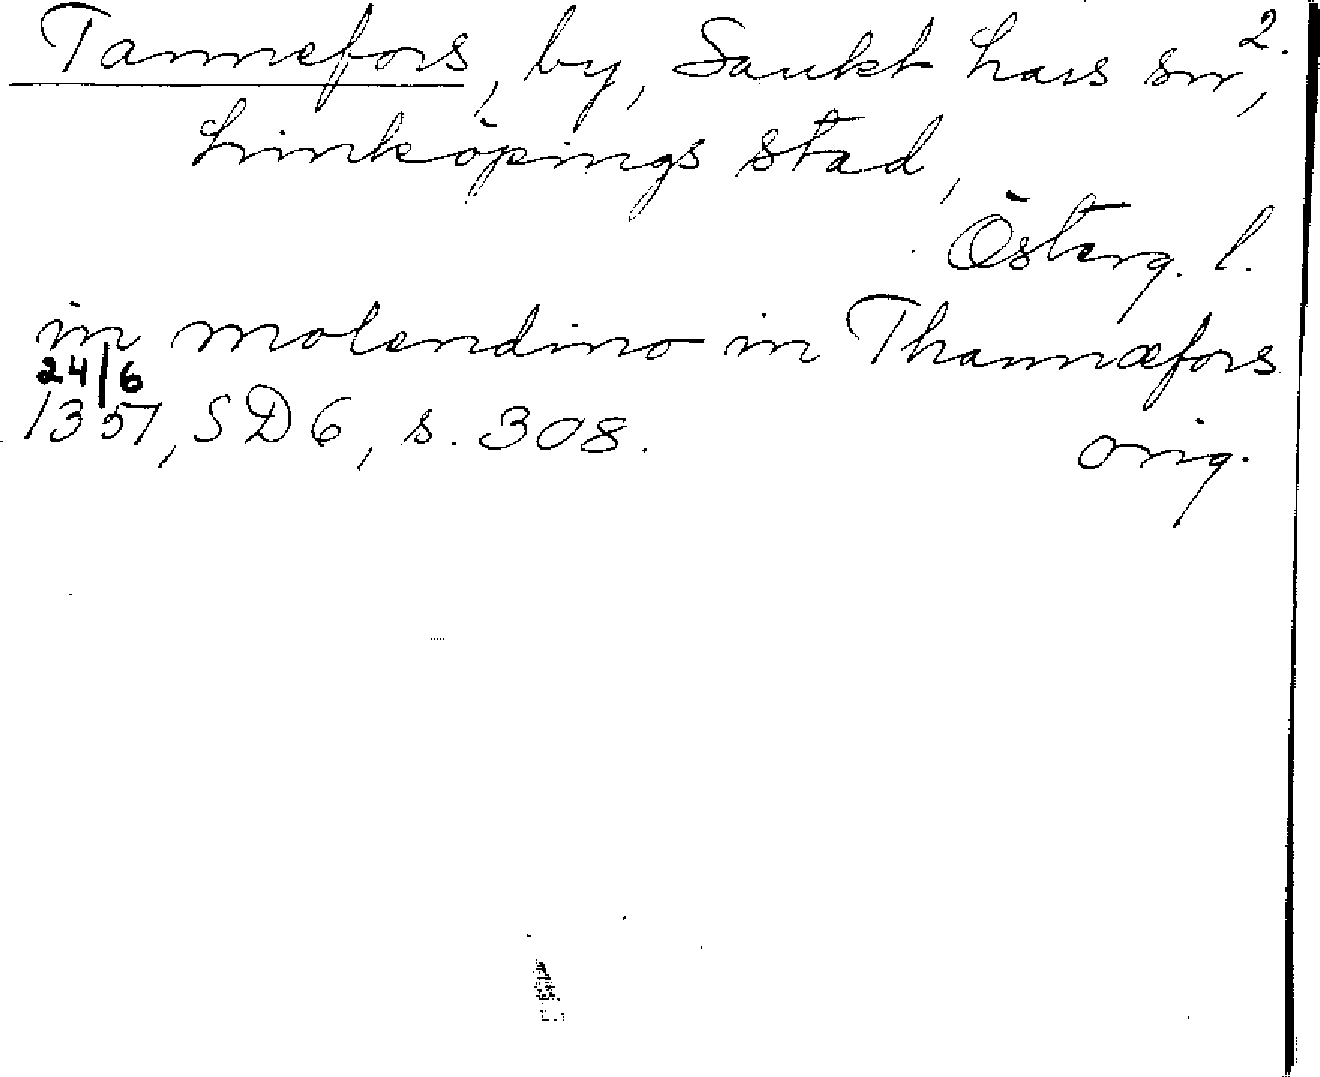 2.
Tannefors, by, Sankt Lars sn,
Linköpings stad,
Österg. l.
in molendino in Thannæfors
24/6
1351, SD 6, s. 308. orig.